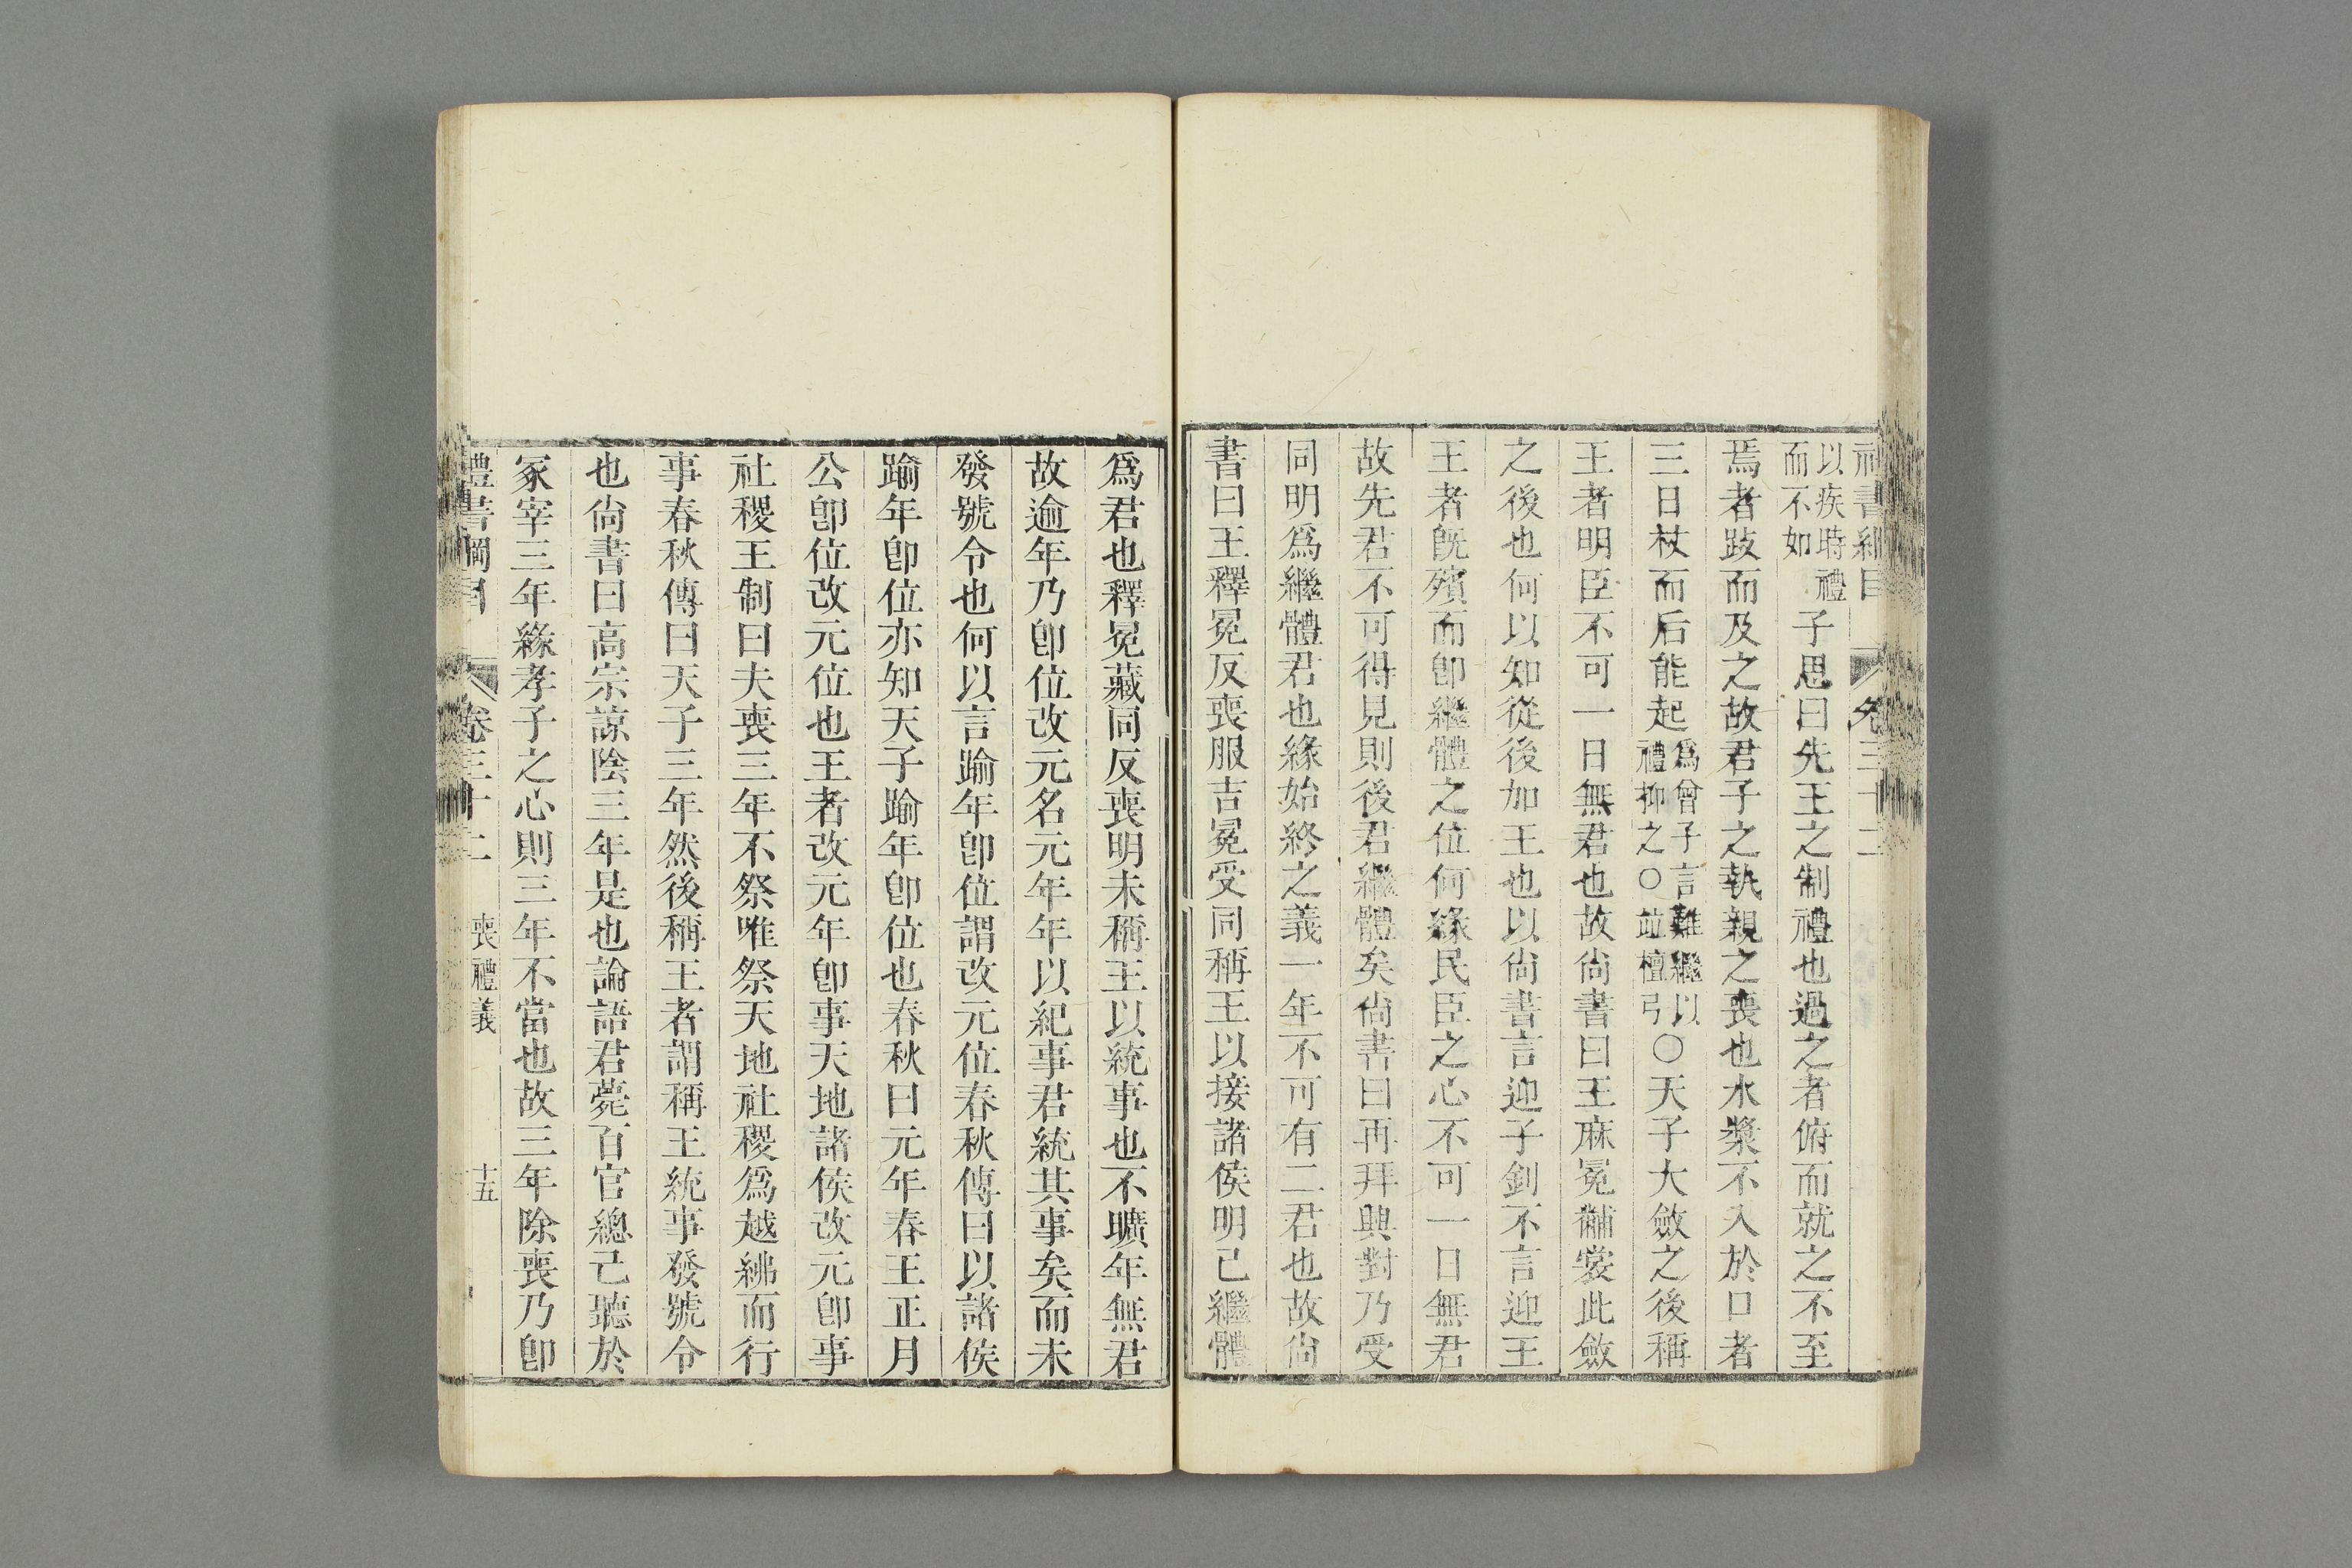 禮書綱目 卷三十二
以疾時禮而不如 子思曰先王之制禮也過之者俯而就之不至
焉者跂而及之故君子之執親之喪也水漿不入於口者
三日杖而后能起爲曾子言難繼以禮抑之○竝檀弓○天子大斂之後稱
王者明臣不可一日無君也故尙書曰王麻冕黼裳此斂
之後也何以知從後加王也以尙書言迎子釗不言迎王
王者旣殯而卽繼體之位何緣民臣之心不可一日無君
故先君不可得見則後君繼體矣尙書曰再拜興對乃受
同明爲繼體君也緣始終之義一年不可有二君也故尙
書曰王釋冕反喪服吉冕受同稱王以接諸侯明已繼體
爲君也釋冕藏同反喪明未稱王以統事也不曠年無君
故逾年乃卽位改元名元年年以紀事君統其事矣而未
發號令也何以言踰年卽位謂改元位春秋傳曰以諸侯
踰年卽位亦知天子踰年卽位也春秋曰元年春王正月
公卽位改元位也王者改元年卽事天地諸侯改元卽事
社稷王制曰夫喪三年不祭唯祭天地社稷爲越紼而行
事春秋傳曰天子三年然後稱王者謂稱王統事發號令
也尙書曰高宗諒陰三年是也論語君薨百官總己聽於
冢宰三年緣孝子之心則三年不當也故三年除喪乃卽
禮書綱目 卷三十二 喪禮義 十五